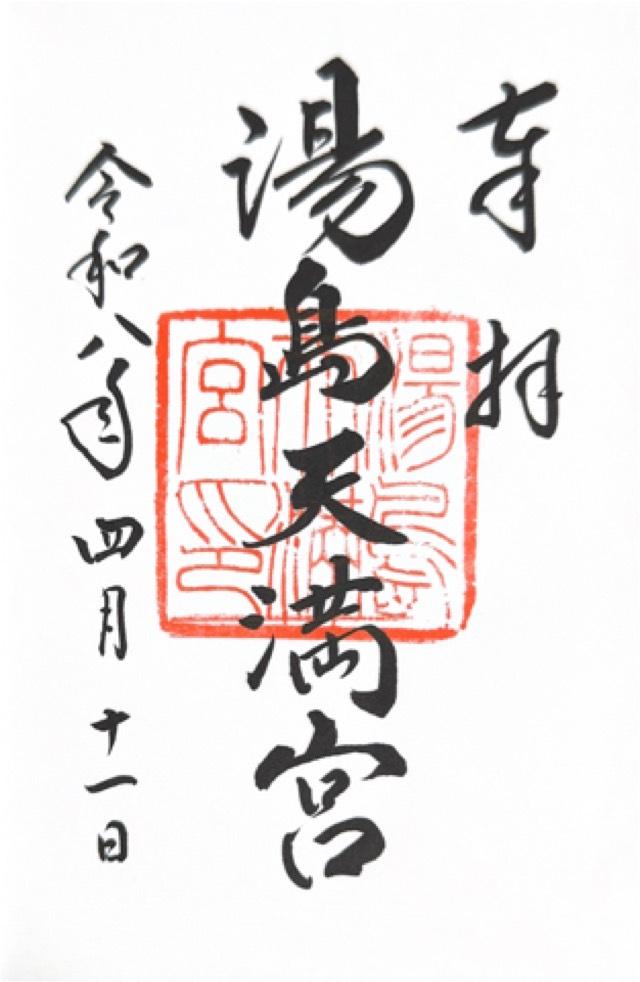 奉拝
湯島天満宮
湯島天満宮印
令和八年四月十一日